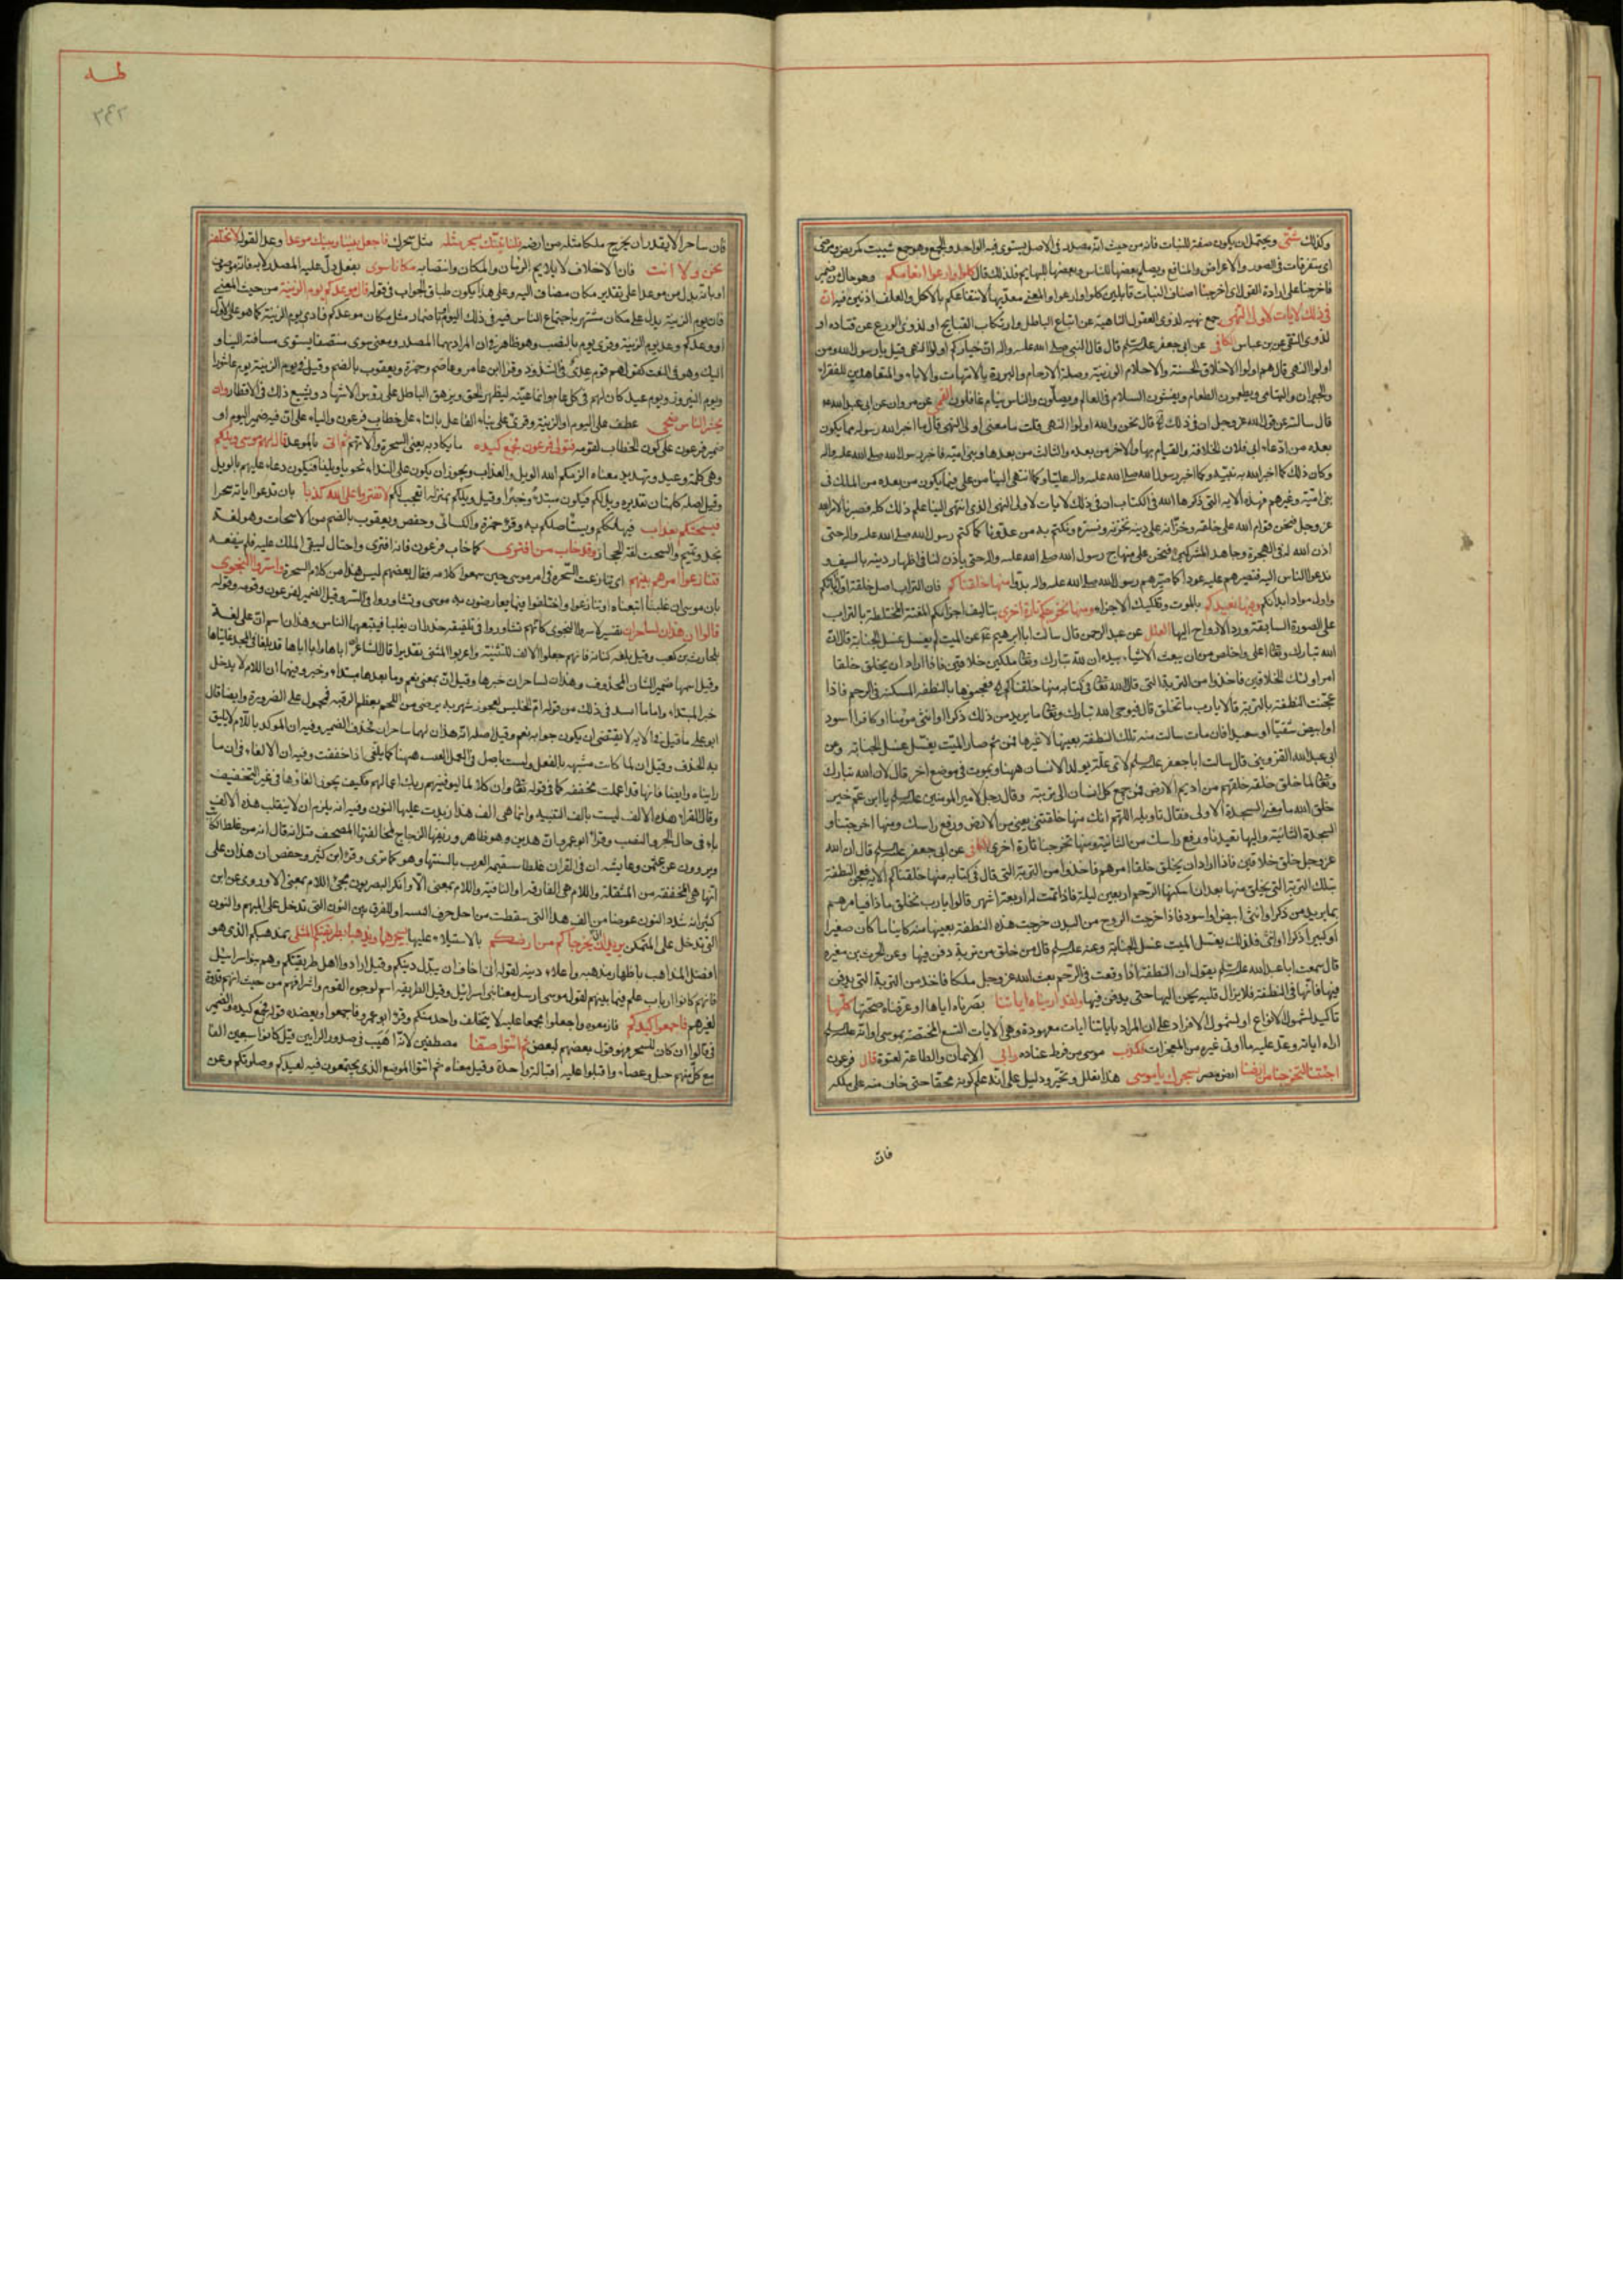 وكذلك شتّى ويحتمل ان يكون صفة للنبات فانه من حيث انه مصدر فى الاصل يستوى فيه الواحد والجمع وهو جمع شتيت كمريض ومرضى
اى متفرقات فى الصور والاعراض والمنافع ويصلح بعضها للناس وبعضها للبهايم فلذلك قال كلوا وارعوا انعامكم وهو حال من ضمير
فاخرجنا على ارادة القول اى اخرجنا اصناف النبات قايلين كلوا وارعوا والمعنى معدّيها لانتفاعكم بالاكل والعلف اذنين فيه انّ
فى ذلك لايات لاولى النهى جمع نهيه لذوى العقول الناهية عن اتباع الباطل وارتكاب القبايح او لذوى الورع عن قتاده او
لذوى التقى عن بن عباس الكافى عن ابى جعفر عليه السلام قال قال النبى صلى الله عليه واله ان خياركم اولوا النهى قيل يا رسول الله ومن
اولوا النهى قال هم اولوا الاخلاق الحسنة والاحلام الرزينة وصلة الارحام والبررة بالامهات والاباء والمتعاهدين للفقراء
والجيران واليتامى ويطعمون الطعام ويفشون السلام فى العالم ويصلّون والناس نيام غافلون القمى عن مروان عن ابى عبد الله
قال سالته عن قول الله عز وجل ان فى ذلك قال نحن والله اولوا النهى قلت ما معنى اولى النهى قال ما اخبر الله رسوله مما يكون
بعده من ادّعاء ابى فلان الخلافة والقيام بها والاخر من بعده والثالث من بعدهما وبنى اميّة فاخبر رسول الله صلى الله عليه واله
وكان ذلك كما اخبر الله به نبيّه وكما اخبر رسول الله صلى الله عليه واله عليّا وكما انتهى الينا من على فيما يكون من بعده من الملك فى
بنى اميّة وغيرهم فهذه الاية التى ذكرها الله فى الكتاب ان فى ذلك لايات لاولى النهى الذى انتهى الينا علم ذلك كله فصبرنا لامر الله
عز وجل فنحن قوام الله على خلقه وخزّانه على دينه نخزنه ونستره ونكتتم به من عدوّنا كما كتم رسول الله صلى الله عليه واله حتى
اذن الله له فى الهجرة وجاهد المشركين فنحن على منهاج رسول الله صلى الله عليه واله حتى ياذن لنا فى اظهار دينه بالسيف و
ندعوا الناس اليه فنضربهم عليه عودا كما ضربهم رسول الله صلى الله عليه واله بدءا منها خلقناكم فان التراب اصل خلقة اول ابائكم
واول مواد ابدانكم وفيها نعيدكم بالموت وتفكيك الاجزاء ومنها نخرجكم تارة اخرى بتاليف اجزائكم المفتتة المختلطة بالتراب
على الصورة السابقة ورد الارواح اليها العلل عن عبد الرحمن قال سالت ابا ابرهيم عن الميت لم يغسل غسل الجنابة قال انّ
الله تبارك وتعالى اعلى واخلص من ان يبعث الاشياء بيده ان لله تبارك وتعالى ملكين خلاقين فاذا اراد ان يخلق خلقا
امر اولئك الخلاقين فاخذوا من التربة التى قال الله تعالى فى كتابه منها خلقناكم فعجنوها بالنطفة المسكنة فى الرحم فاذا
عجنت النطفة بالتربة قالا يا رب ما تخلق قال فيوحى الله تبارك وتعالى ما يريد من ذلك ذكرا او انثى مومنا او كافرا اسود
او ابيض شقيّا او سعيدا فان مات سالت منه تلك النطفة بعينها لا غيرها فمن ثم صار الميت يغسل غسل الجنابة وعن
ابى عبد الله القزوينى قال سالت ابا جعفر عليه السلام لاى علّة يولد الانسان ههنا ويموت فى موضع اخر قال لان الله تبارك
وتعالى لما خلق خلقه خلقهم من اديم الارض فمرجع كل انسان الى تربته وقال رجل لامير المومنين عليه السلام يا ابن عم خير
خلق الله ما معنى السجدة الاولى فقال تاويله اللهم انك منها خلقتنى يعنى من الارض ورفع راسك ومنها اخرجتنا و
السجدة الثانية واليها تعيدنا ورفع راسك من الثانية ومنها تخرجنا تارة اخرى الكافى عن ابى جعفر عليه السلام قال ان الله
عز وجل خلق خلاقين فاذا اراد ان يخلق خلقا امرهم فاخذوا من التربة التى قال فى كتابه منها خلقناكم الاية فعجن النطفة
بتلك التربة التى يخلق منها بعد ان اسكنها الرحم اربعين ليلة فاذا تمت له اربعة اشهر قالوا يا رب تخلق ماذا فيامرهم
بما يريد من ذكر او انثى ابيض او اسود فاذا خرجت الروح من البدن خرجت هذه النطفة بعينها منه كاينا ما كان صغيرا
او كبيرا ذكرا او انثى فلذلك يغسل الميت غسل الجنابة وعنه عليه السلام قال من خلق من تربة دفن فيها وعن الحرث بن مغيره
قال سمعت ابا عبد الله عليه السلام يقول ان النطفة اذا وقعت فى الرحم بعث الله عز وجل ملكا فاخذ من التربة التى يدفن
فيها فماثها فى النطفة فلا يزال قلبه يحن اليها حتى يدفن فيها ولقد اريناه اياتنا بصّرناه اياها او عرّفناه صحتها كلّها
تاكيد لشمول الانواع او لشمول الافراد على ان المراد باياتنا ايات معهودة وهى الايات التسع المختصة بموسى او انه عليه السلم
اراه اياته وعدّ عليه ما اوتى غيره من المعجزات فكذب موسى من فرط عناده وابى الايمان والطاعة لعتوّه قال فرعون
اجئتنا لتخرجنا من ارضنا ارض مصر بسحرك يا موسى هذا تعلل وتحيّر ودليل على انه علم كونه محقّا حتى خاف منه على ملكه
فان
طه
٣٤٢
فان ساحرا لا يقدر ان يخرج ملكا مثله من ارضه فلناتينّك بسحر مثله مثل سحرك فاجعل بيننا وبينك موعدا وعدا لقوله لا نخلفه
نحن ولا انت فان الاخلاف لا يلايم الزمان والمكان وانتصاب مكانا سوى بفعل دلّ عليه المصدر لا به فانه موصوف
او بانه بدل من موعدا على تقدير مكان مضاف اليه وعلى هذا يكون طباق الجواب فى قوله قال موعدكم يوم الزينة من حيث المعنى
فان يوم الزينة يدل على مكان مشتهر باجتماع الناس فيه فى ذلك اليوم او باضمار مثل مكان موعدكم مكان يوم الزينة كما هو على الاول
او وعدكم وعد يوم الزينة وقرئ يوم بالنصب وهو ظاهر فى ان المراد بهما المصدر ومعنى سوى منتصفا يستوى مسافته الينا و
اليك وهو فى النعت كقولهم قوم عدى فى الشذوذ وقرا ابن عامر وعاصم وحمزة ويعقوب بالضم وقيل فى يوم الزينة يوم عاشورا
ويوم النيروز ويوم عيد كان لهم فى كل عام وانما عيّنه ليظهر الحق ويزهق الباطل على رؤس الاشهاد ويشيع ذلك فى الاقطار وان
يحشر الناس ضحى عطف على اليوم او الزينة وقرئ على بناء الفاعل بالتاء على خطاب فرعون والياء على ان فيه ضمير اليوم او
ضمير فرعون على كون الخطاب لقومه فتولى فرعون فجمع كيده ما يكاد به يعنى السحرة والاتهم ثم اتى بالموعد قال لهم موسى ويلكم
وهى كلمة وعيد وتهديد معناه الزمكم الله الويل والعذاب ويجوز ان يكون على النداء نحو يا ويلنا فيكون دعاء عليهم بالويل
لا تفتروا على الله كذبا بان تدعوا اياته سحرا
فيسحتكم بعذاب فيهلككم ويستاصلكم به وقرأ حمزة والكسائى وحفص ويعقوب بالضم من الاسحات وهو لغة
نجد وتميم والسحت لغة الحجاز وقد خاب من افترى كما خاب فرعون فانه افترى واحتال ليبقى الملك عليه فلم ينفعه
فتنازعوا امرهم بينهم اى تنازعت السحرة فى امر موسى حين سمعوا كلامه فقال بعضهم ليس هذا من كلام السحرة واسروا النجوى
بان موسى ان غلبنا اتبعناه او تنازعوا واختلفوا فيما يعارضون به موسى وتشاوروا فى السر وقيل الضمير لفرعون وقومه وقوله
قالوا ان هذان لساحران تفسير لاسروا النجوى كانهم تشاوروا فى تلفيقه حذرا ان يغلبا فيتبعهما الناس وهذان اسم ان على لغة
بلحارث بن كعب وقيل بلغه كنانه فانهم جعلوا الالف للتثنية واعربوا المثنى تقديرا قال الشاعر ان اباها وابا اباها قد بلغا فى المجد غايتاها
وقيل اسمها ضمير الشان المحذوف وهذان لساحران خبرها وقيل ان بمعنى نعم وما بعدها مبتداء وخبر وفيهما ان اللام لا يدخل
خبر المبتداء واما ما انشد فى ذلك من قوله ام الحليس لعجوز شهربه يرضى من اللحم بعظم الرقبه فمحمول على الضرورة وايضا قال
ابو على ما قبل ذا الاية لا يقتضى ان يكون جوابه نعم وقيل اصله انه هذان لهما ساحران فحذف الضمير وفيه ان الموكد باللام لا يليق
وقال الفراء هذه الالف ليست بالف التثنيه وانما هى الف هذا زيدت عليها النون وفيه انه يلزم ان لا ينقلب هذه الالف
ياء فى حال الجر والنصب وقرأ ابو عمرو ان هذين وهو ظاهر
ويروون عن عثمن وعايشه ان فى القران غلطا ستقيمه العرب بالسنتها وهو كما ترى وقرأ ابن كثير وحفص ان هذان على
انها هى المخففة من المثقلة واللام هى الفارقه او النافية واللام بمعنى الا وانكر البصريون مجئ اللام بمعنى الا وروى عن ابن
كثير انه شدد النون عوضا من الف هذا التى سقطت من اجل حرف التثنيه او للفرق بين النون التى تدخل على المبهم والنون
التى تدخل على المتمكن يريدان ان يخرجاكم من ارضكم بالاستيلاء عليها بسحرهما ويذهبا بطريقتكم المثلى بمذهبكم الذى هو
افضل المذاهب باظهار مذهبه واعلاء دينه لقوله انى اخاف ان يبدل دينكم وقيل ارادوا اهل طريقتكم وهم بنوا اسرائيل
فانهم كانوا ارباب علم فيما بينهم لقول موسى ارسل معنا بنى اسرائيل وقيل الطريقه اسم لوجوه القوم واشرافهم من حيث انهم قدوة
لغيرهم فاجمعوا كيدكم فازمعوه واجعلوا مجمعا عليه لا يتخلف واحد منكم وقرأ ابو عمرو فاجمعوا ويعضده قوله فجمع كيده والضمير
فى قالوا ان كان للسحرة فهو قول بعضهم لبعض ثم ائتوا صفا مصطفين لانه اهيب فى صدور الرايين قيل كانوا سبعين الفا
مع كل منهم حبل وعصاء واقبلوا عليه اقبالة واحدة وقيل معناه ثم ائتوا الموضع الذى يجتمعون فيه لعيدكم وصلوتكم وعن